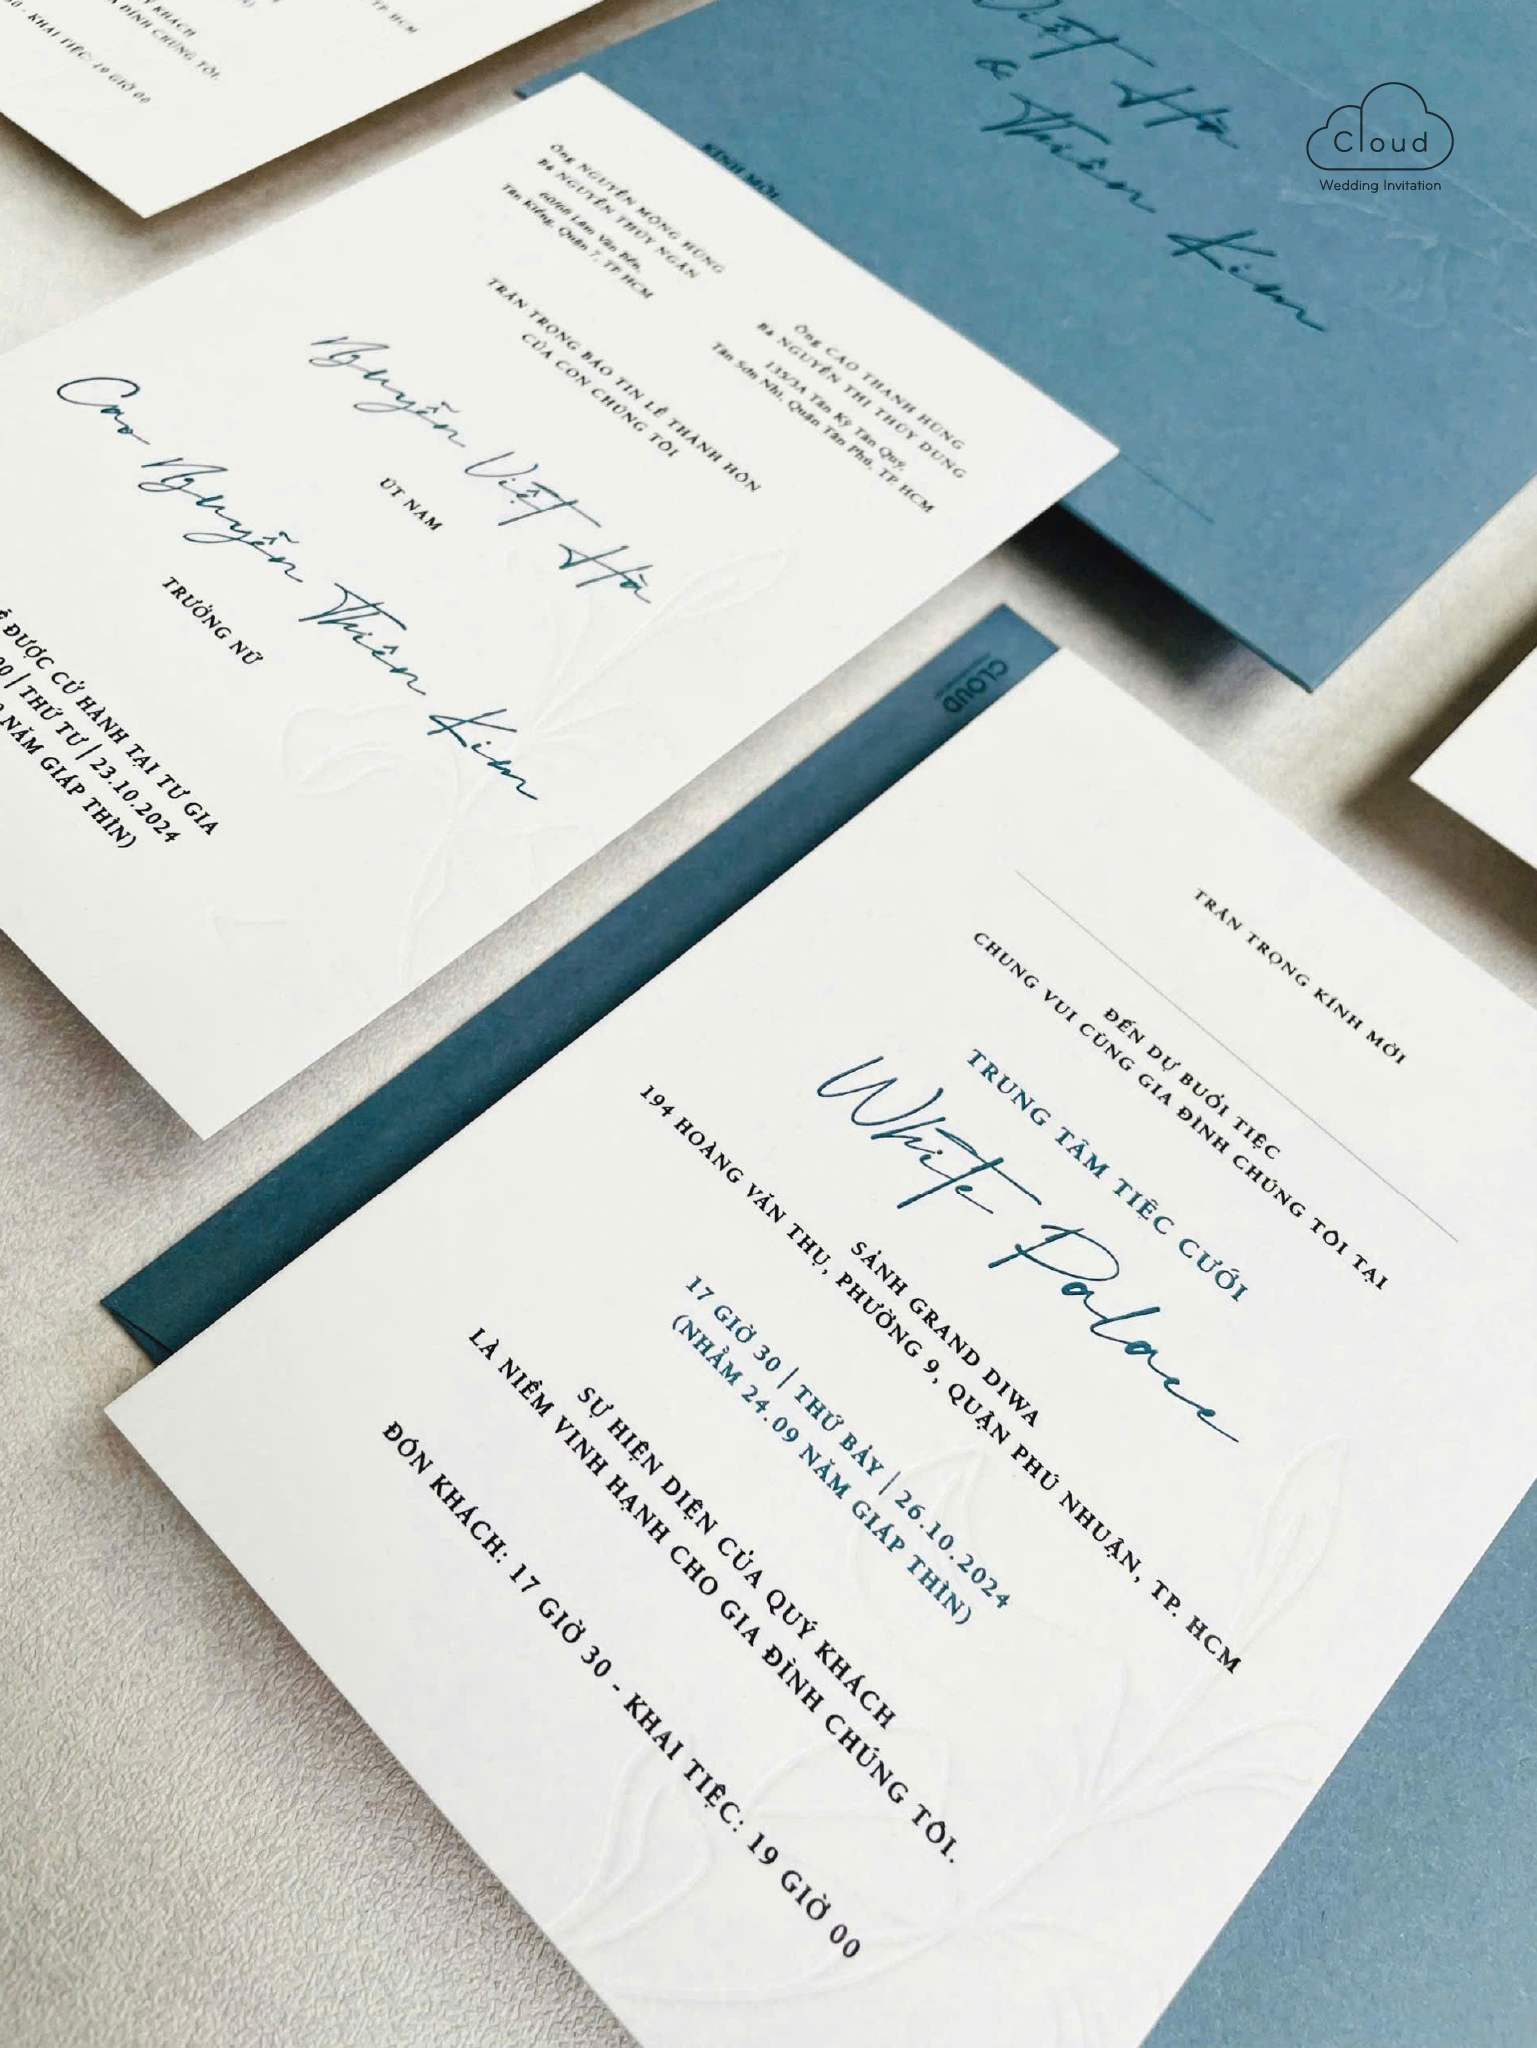 TP HCM
KHÁCH
ĐÌNH CHÚNG TÔI.
30 - KHAI TIỆC: 19 GIỜ 00
Việt Hà
&
Thiên Kim
Cloud
Wedding Invitation
KÍNH MỜI
Ông NGUYỄN MỘNG HÙNG
Bà NGUYỄN THÚY NGÂN
60/68 Lâm Văn Bền,
Tân Kiểng, Quận 7, TP HCM
Ông CAO THANH HÙNG
Bà NGUYỄN THỊ THÙY DUNG
135/3A Tân Kỳ Tân Quý,
Tân Sơn Nhì, Quận Tân Phú, TP HCM
TRÂN TRỌNG BÁO TIN LỄ THÀNH HÔN
CỦA CON CHÚNG TÔI
Nguyễn Việt Hà
ÚT NAM
Cao Nguyễn Thiên Kim
TRƯỞNG NỮ
ĐƯỢC CỬ HÀNH TẠI TƯ GIA
00 | THỨ TƯ | 23.10.2024
NĂM GIÁP THÌN)
CLOUD
TRÂN TRỌNG KÍNH MỜI
ĐẾN DỰ BUỔI TIỆC
CHUNG VUI CÙNG GIA ĐÌNH CHÚNG TÔI TẠI
TRUNG TÂM TIỆC CƯỚI
White Palace
SẢNH GRAND DIWA
194 HOÀNG VĂN THỤ, PHƯỜNG 9, QUẬN PHÚ NHUẬN, TP. HCM
17 GIỜ 30 | THỨ BẢY | 26.10.2024
(NHẰM 24.09 NĂM GIÁP THÌN)
SỰ HIỆN DIỆN CỦA QUÝ KHÁCH
LÀ NIỀM VINH HẠNH CHO GIA ĐÌNH CHÚNG TÔI.
ĐÓN KHÁCH: 17 GIỜ 30 - KHAI TIỆC: 19 GIỜ 00